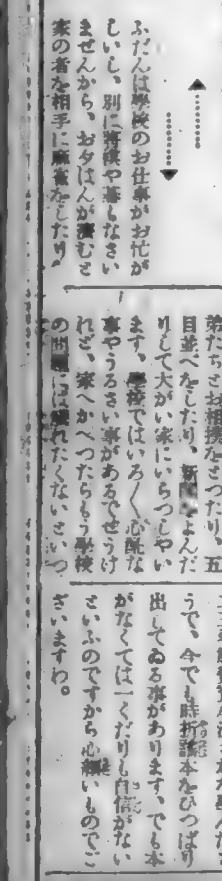 ふだんは學校のお仕事がお忙が
しいし、別に將棋や碁もなさい
ませんから、お夕はんが濟むと
家の者を相手に麻雀をしたり、
弟たちとお相撲をとつたり、五
目並べをしたり、新聞をよんだ
りして大がい家にいらつしやい
ます。學校ではいろ／＼心配な
事やうるさい事があるでせうけ
れど、家へかへつたらもう學校
の問題には觸れたくないといつ
うで、今でも時折謠本をひつぱり
出してゐる事があります、でも本
がなくては一くだりも自信がない
といふのですから心細いものでご
ざいますわ。